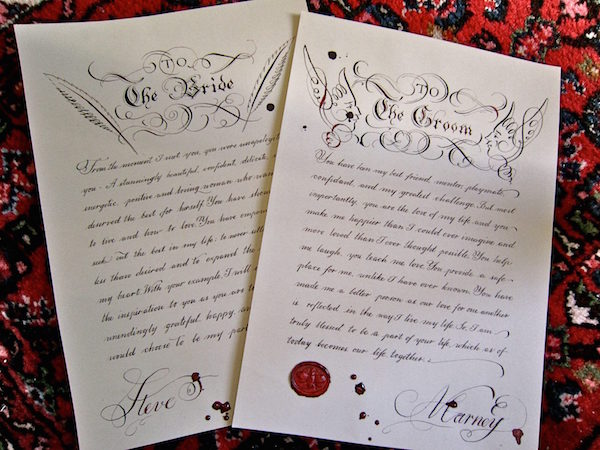 To
The Bride
From the moment I met you, you were unapologeti
you - A stunningly beautiful, confident, delicate,
energetic, positive and loving woman who wan
deserved the best for herself. You have show
to live and how to love. You have empow
seek out the best in my life; to never settl
less than desired and to expand the
my heart. With your example, I will
the inspiration to you as you are t
unendingly grateful, happy, an
would choose to be my part
Steve
To
The Groom
You have been my best friend, mentor, playmate,
confidant, and my greatest challenge. But most
importantly, you are the love of my life and you
make me happier than I could ever imagine and
more loved than I ever thought possible. You help
me laugh, you teach me love. You provide a safe
place for me, unlike I have ever known. You have
made me a better person, as our love for one another
is reflected in the way I live my life. So, I am
truly blessed to be a part of your life, which as of
today becomes our life together.
Marney